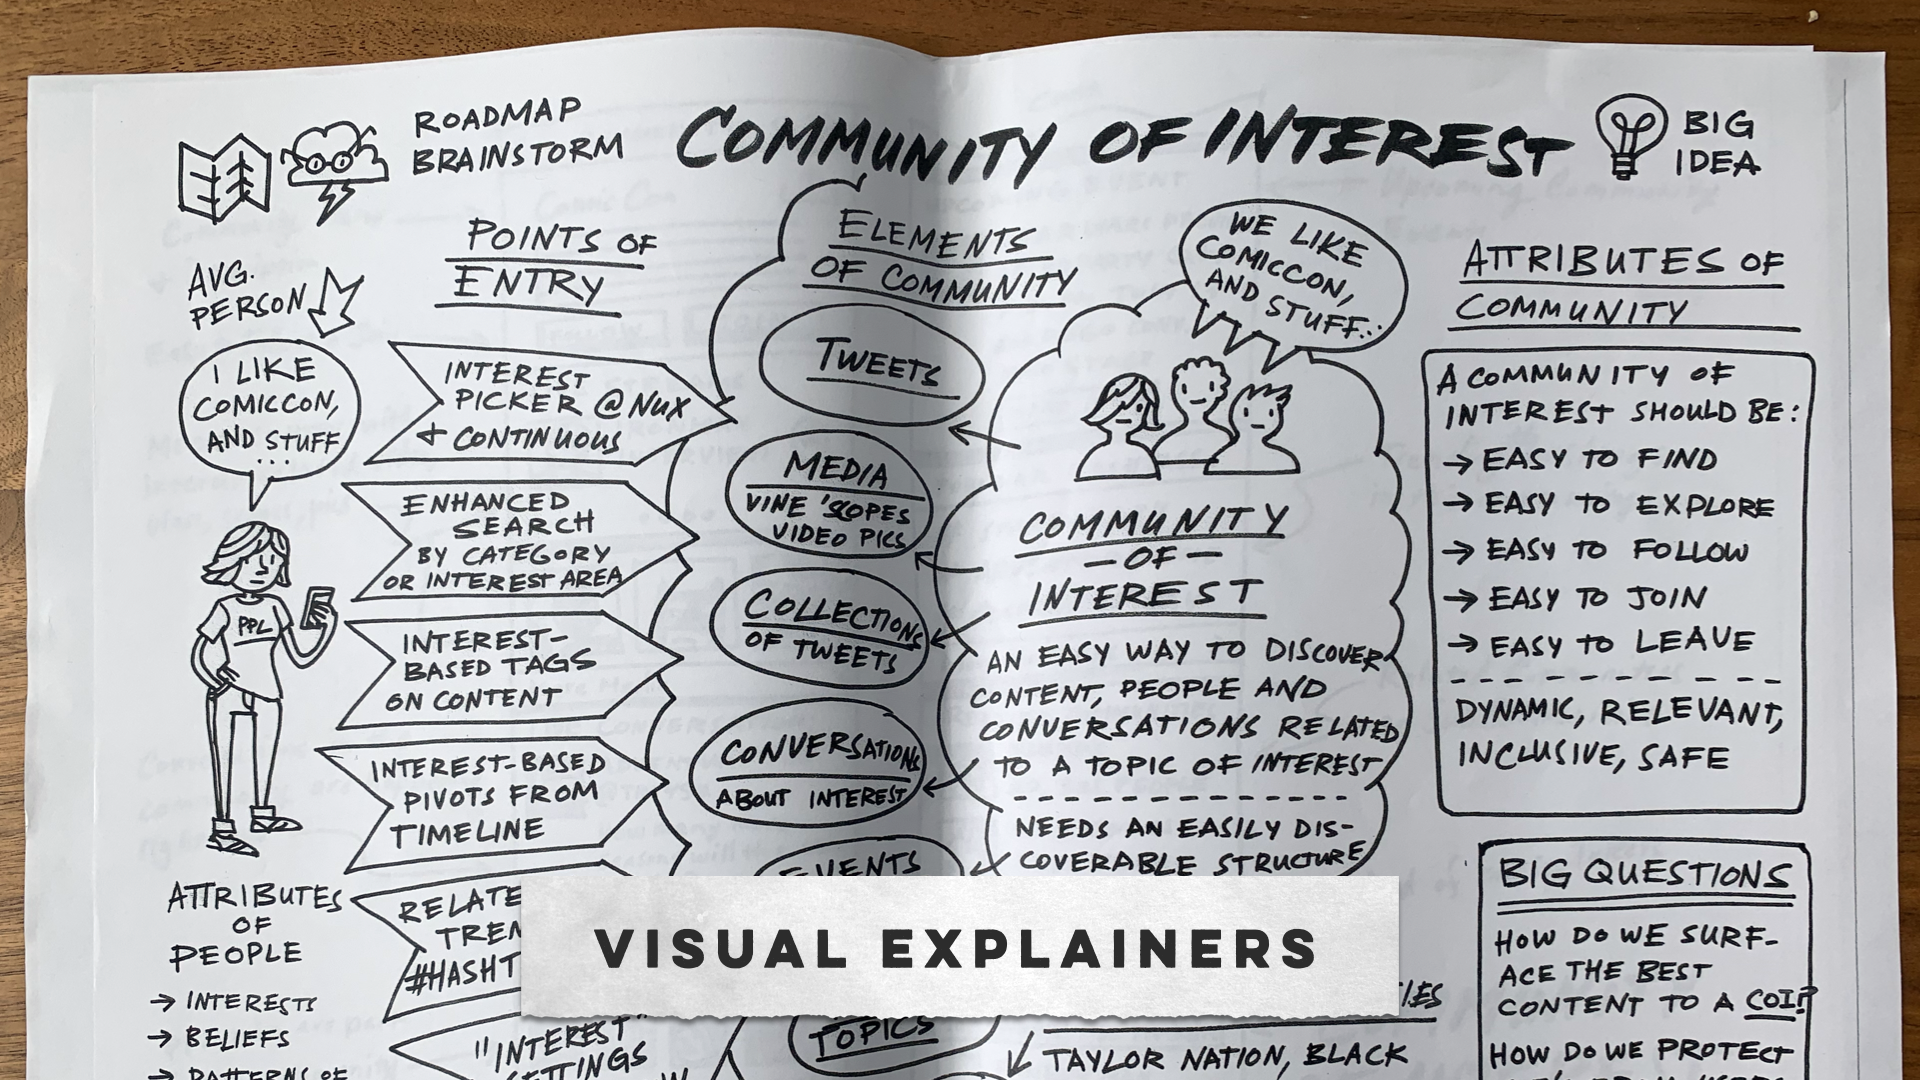 ROADMAP
BRAINSTORM
COMMUNITY OF INTEREST
BIG
IDEA
AVG.
PERSON
I LIKE
COMICCON,
AND STUFF
...
PPL
POINTS OF
ENTRY
INTEREST
PICKER @ NUX
+ CONTINUOUS
ENHANCED
SEARCH
BY CATEGORY
OR INTEREST AREA
INTEREST-
BASED TAGS
ON CONTENT
INTEREST-BASED
PIVOTS FROM
TIMELINE
RELATE
TREN
#HASHT
"INTEREST"
ELEMENTS
OF COMMUNITY
TWEETS
MEDIA
VINE 'SCOPES
VIDEO PICS
COLLECTIONS
OF TWEETS
CONVERSATIONS
ABOUT INTEREST
EVENTS
TOPICS
WE LIKE
COMICCON,
AND STUFF...
COMMUNITY
- OF -
INTEREST
AN EASY WAY TO DISCOVER
CONTENT, PEOPLE AND
CONVERSATIONS RELATED
TO A TOPIC OF INTEREST
NEEDS AN EASILY DIS-
COVERABLE STRUCTURE
TAYLOR NATION, BLACK
ATTRIBUTES OF
COMMUNITY
A COMMUNITY OF
INTEREST SHOULD BE:
→ EASY TO FIND
→ EASY TO EXPLORE
→ EASY TO FOLLOW
→ EASY TO JOIN
→ EASY TO LEAVE
DYNAMIC, RELEVANT,
INCLUSIVE, SAFE
BIG QUESTIONS
HOW DO WE SURF-
ACE THE BEST
CONTENT TO A COI?
HOW DO WE PROTECT
ATTRIBUTES
OF
PEOPLE
→ INTERESTS
→ BELIEFS
→ PATTERNS OF
VISUAL EXPLAINERS